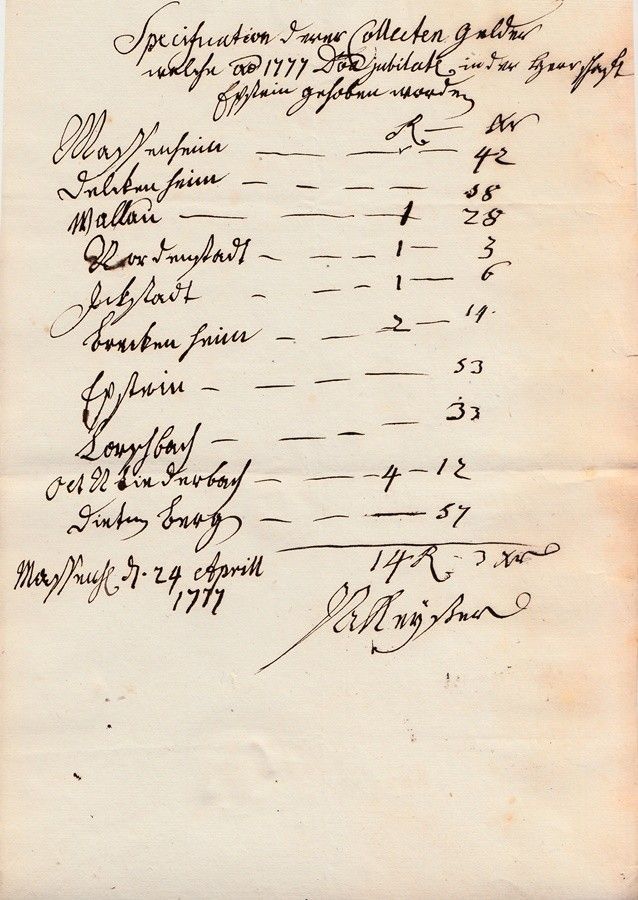 Specification derer Collecten Gelder
welche ao 1777 Dom Jubilate in der Herrschafft
Epstein gehoben worden
R — Xr
Massenheim — — — — 42
Delckenheim — — — — 58
Wallau — — 1 28
Nordenstadt — — — 1 — 3
Ickstadt — — — 1 — 6
Breckenheim — — 2 — 14
Epstein — — — — 53
Lorschbach — — — — 33
et Niederbach — — — 4 — 12
Dietenberg — — — 57
14 R - 3 Xr
Massenh. d. 24 Aprill
1777